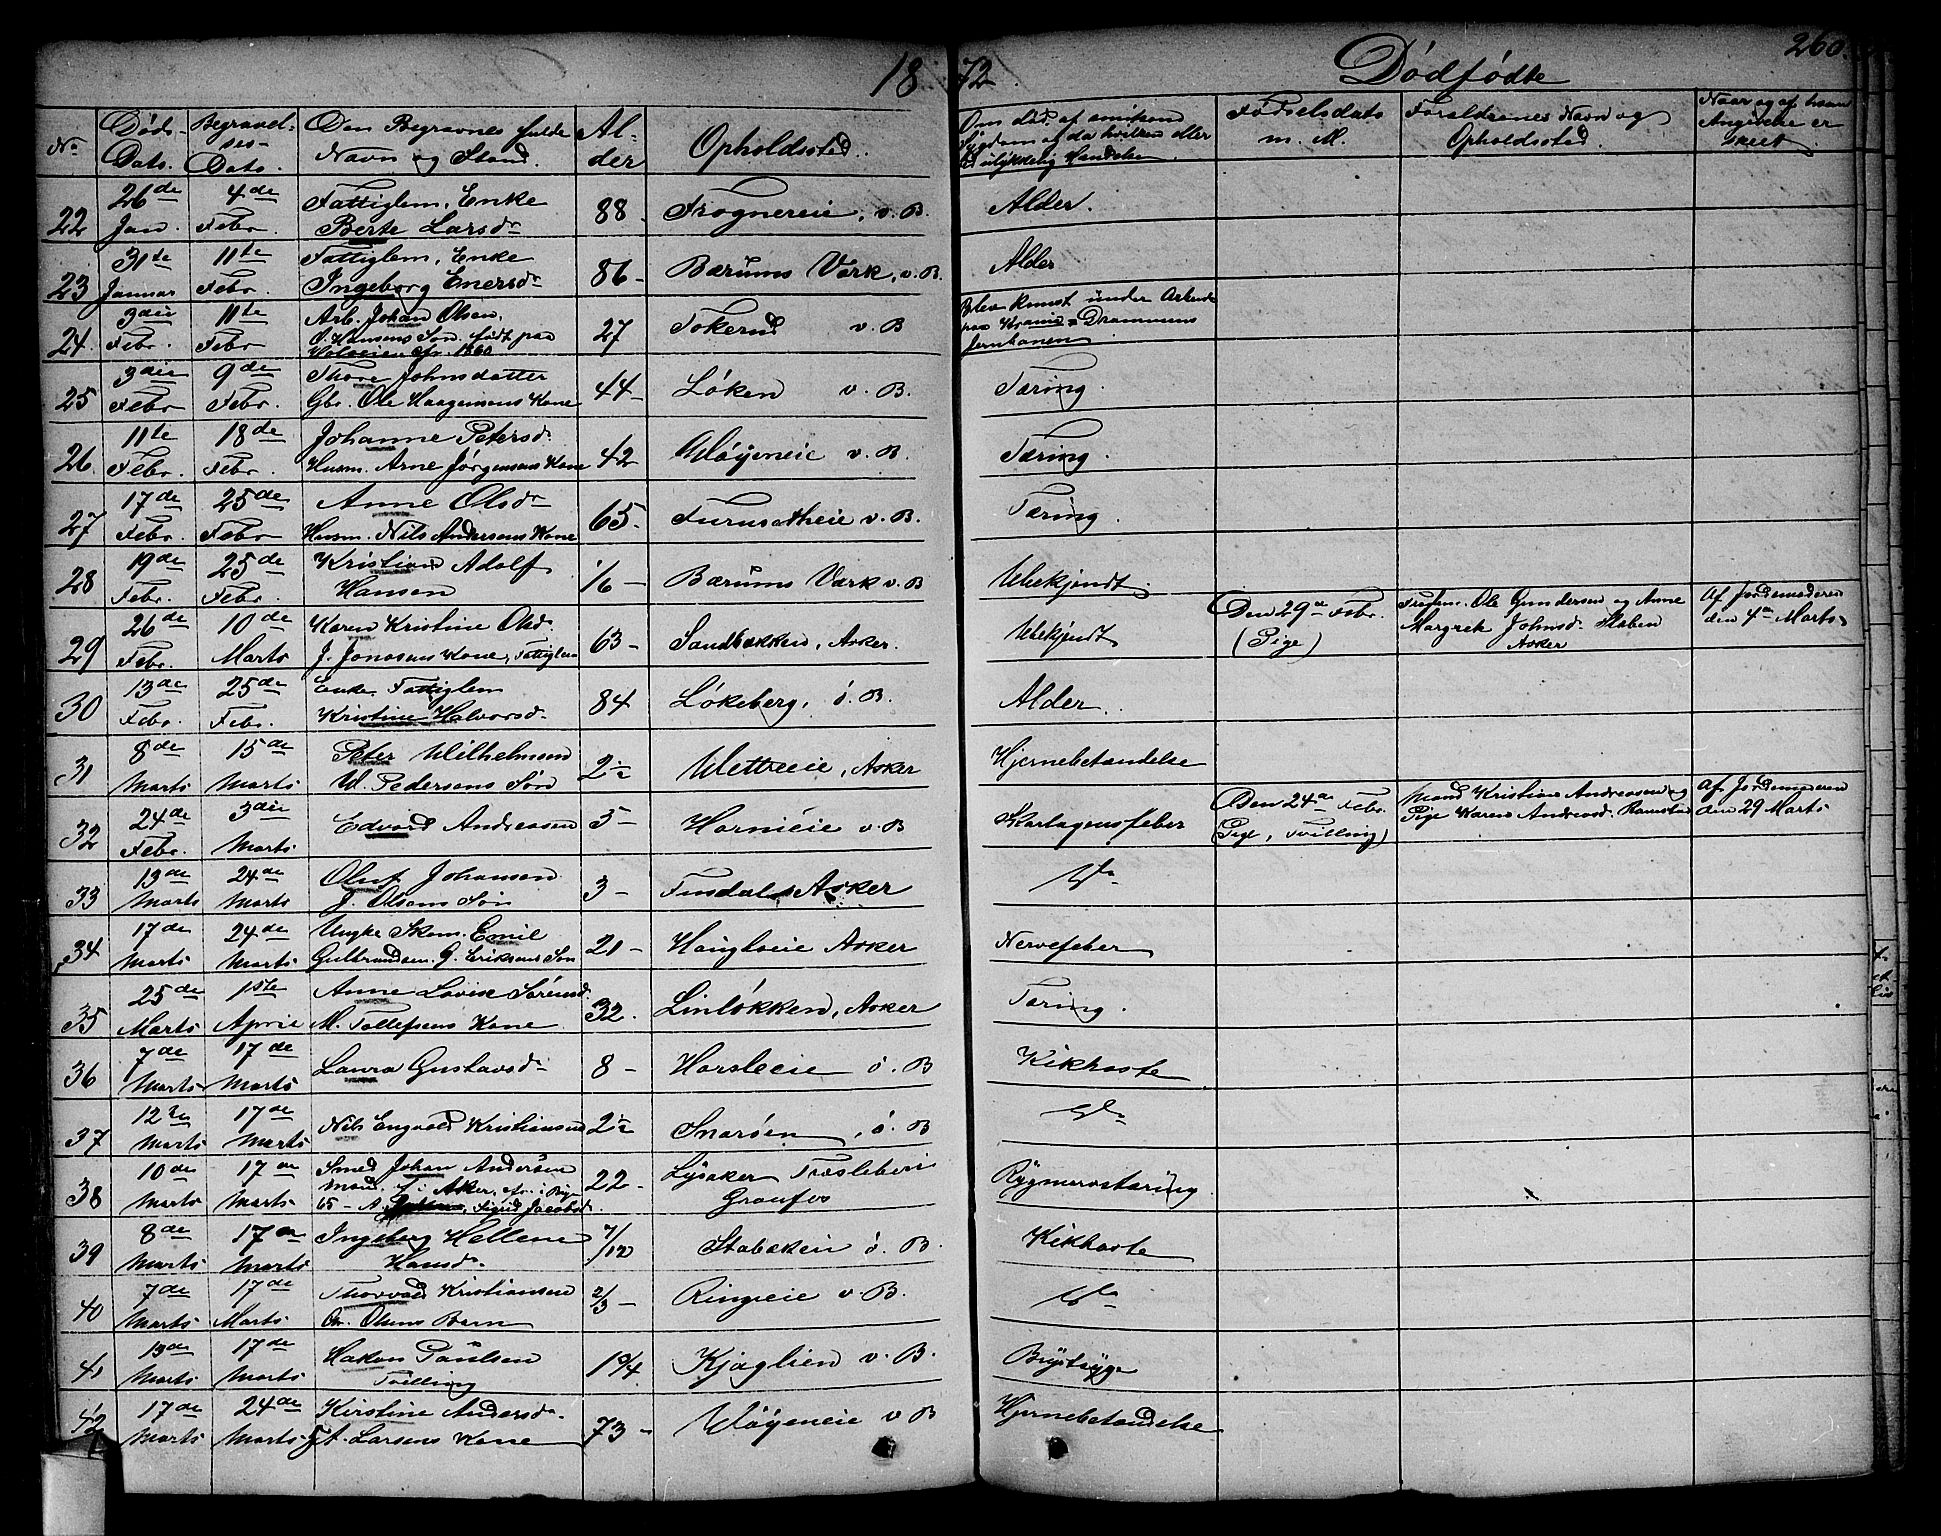 1872 Dødfødte 260.
No Døds-Dato. Begravel-ses-Dato. Den Begravnes fulde Navn og Stand. Al-der Opholdssted. Om død af smitsom Sygdom, af da hvilken eller ved ulykkelig Hændelse Fødselsdato m. M. Forældrenes Navn og Opholdssted. Naar og af hvem Angivelse er skeet.
22 26de Jan. 4de Febr. Fattiglem, Enke Berte Larsdr 88 - Frognereie, v. B. Alder.
23 31te Januar 11te Febr. Fattiglem, Enke Ingeborg Enersdr 86 - Bærums Værk, v. B Alder
24. 3die Febr. 11te Febr Arb. Johan Olsen, O. Hansens Søn født paa 1860 27 Tokerud v. B Blev knust under Arbeide paa Drammens Jernbanen
25 3die Febr 9de Febr. Thore Johnsdatter Gbr. Ole Haagensens Kone 44 - Løken v. B. Tæring.
26 11te Febr. 18de Febr Johanne Petersd. Husm. Arne Jørgensens Kone 42 Kløveneie v. B. Tæring.
27 17de Febr. 25de Febr Anne Olsdr Husm. Nils Andersens Kone 65 - Furusætheie v. B. Tæring.
28 19de Febr. 25de Febr. Kristian Adolf Hansen 1/6 - Bærums Værk v. B Ubekjendt.
29 26de Febr. 10de Marts Karen Kristine Olsdr J. Jonasens Kone, Fattiglem 63 - Sandbækken, Asker. Ubekjendt Den 29de Febr. (Pige) Ole Gundersen og Anne Margrete Johnsd. Staben Asker Af Jordemoderen den 4de Marts
30 13de Febr. 25de Febr. Enke Fattiglem Kristine Halvorsd. 84 Løkeberg, ö. B. Alder.
31 8de Marts 15de Marts Peter Wilhelmsen W. Pedersens Søn 2½ Wettreeie, Asker Hjernebetændelse
32 24de Febr. 3die Marts Edvard Andreassen 5 - Hornieie v. B Skarlagensfeber Den 24de Febr. (Pige, Tvilling) Mand Kristian Andreasen og Pige Karen Andreasd. Ramstad Af Jordemoderen den 29 Marts
33 13de Marts 24de Marts Oluf Johansen J. Olsens Søn 3 - Tindals Asker Do
34 17de Marts 24de Marts Ungk. Skom. Emil Gulbrandsen. G. Eriksens Søn 21 - Haugboeie Asker Nervefeber
35 25de Marts 1ste April Anne Lovise Sörensd. M. Tollefsens Kone 32. Linløkken, Asker Tæring.
36 7de Marts 17de Marts Laura Gustavsdr 8 - Horsleeie ö. B Kikhoste
37 12te Marts 17de Marts Nils Engvald Kristiansen 2½ Snarøen, ö. B Do
38 10de Marts 17de Marts Smed Johan Andersen Asker, 65 - A. Sigrid Jacobsd. 22 - Lysaker Træsliberi Granfos Rygmarvstæring
39 8de Marts 17de Marts Ingeborg Hellene Hansdr. 7/12 Stabækeie ö. B. Kikhoste
40 7de Marts 17de Marts Thorvald Kristiansen Chr. Olsens Barn 2/3 - Ringieie v B. Do
41 13de Marts 17de Marts Hakon Paulsen Tvilling 1 ¾ Kjaglien v. B. Brystsyge
42 17de Marts 24de Marts Kirstine Andersdr. Larsens Kone 73 - Kløveneie v B Hjernebetændelse